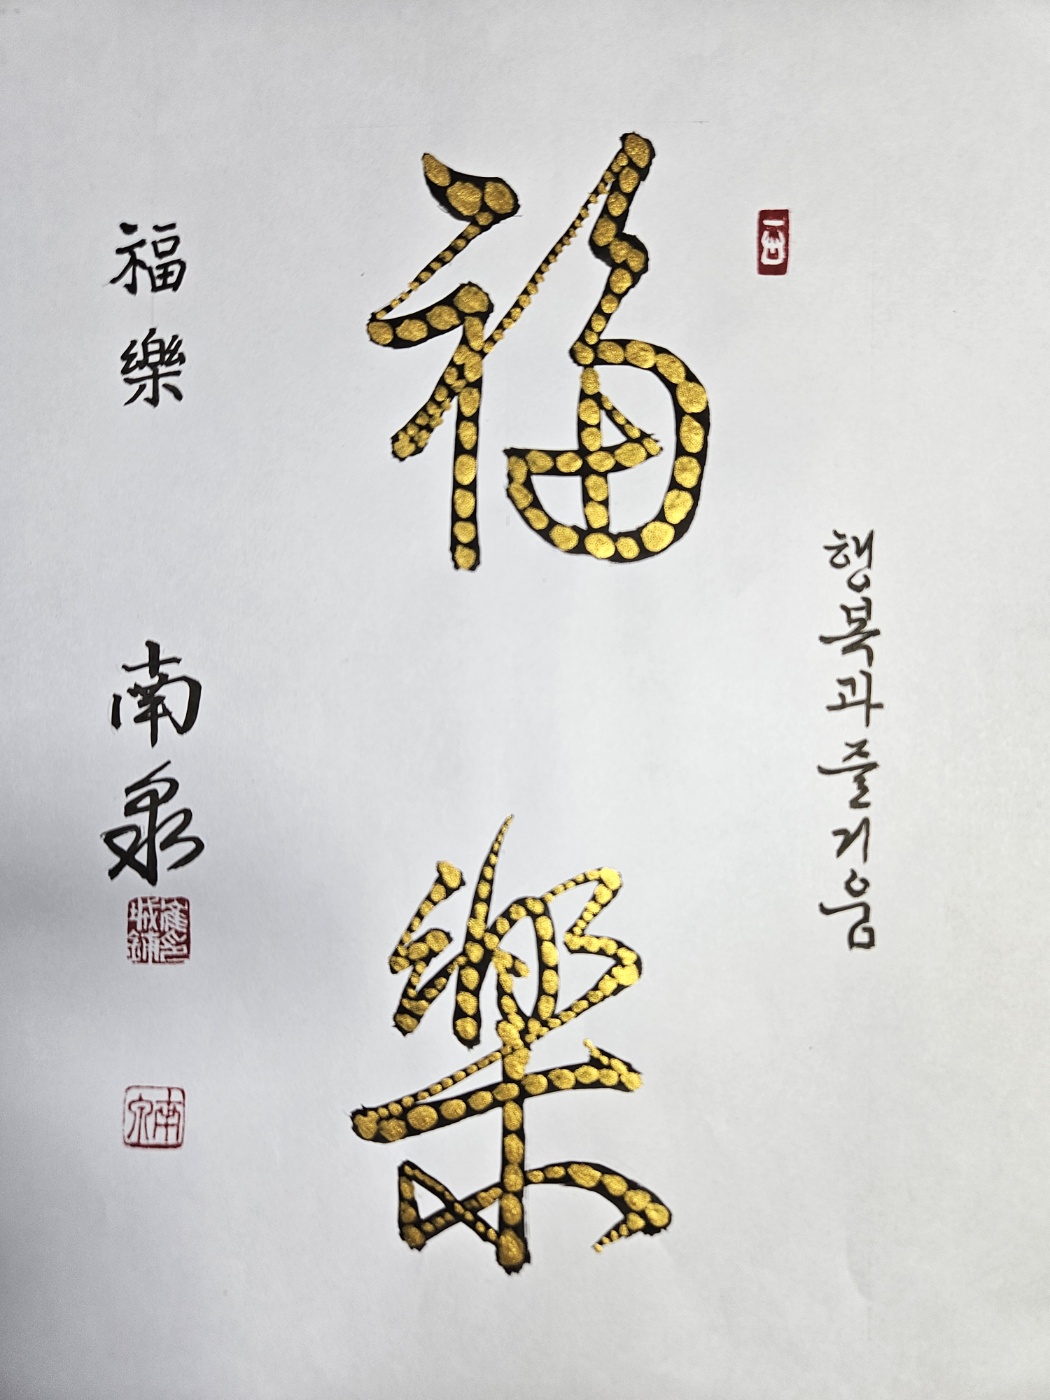 행복과 즐거움
福樂
福樂
南泉
南泉